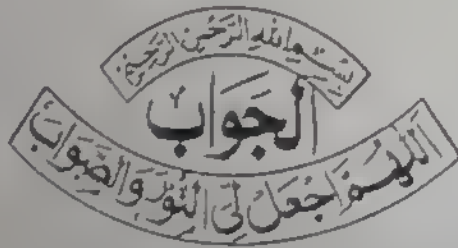 بِسْمِ اللهِ الرَّحْمٰنِ الرَّحِيْمِ
اَلْجَوَابُ
اَللّٰهُمَّ اجْعَلْ لِىَ النُّوْرَ وَالصَّوَابَ